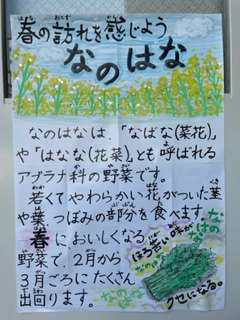 春の訪れを感じよう
なのはな
なのはなは、「なばな(菜花)」
や「はなな(花菜)」とも呼ばれる
アブラナ科の野菜です。
若くてやわらかい花がついた茎
や葉、つぼみの部分を食べます。
春においしくなる
野菜で、2月から
3月ごろにたくさん
出回ります。
ほろ苦い味が
クセになる。